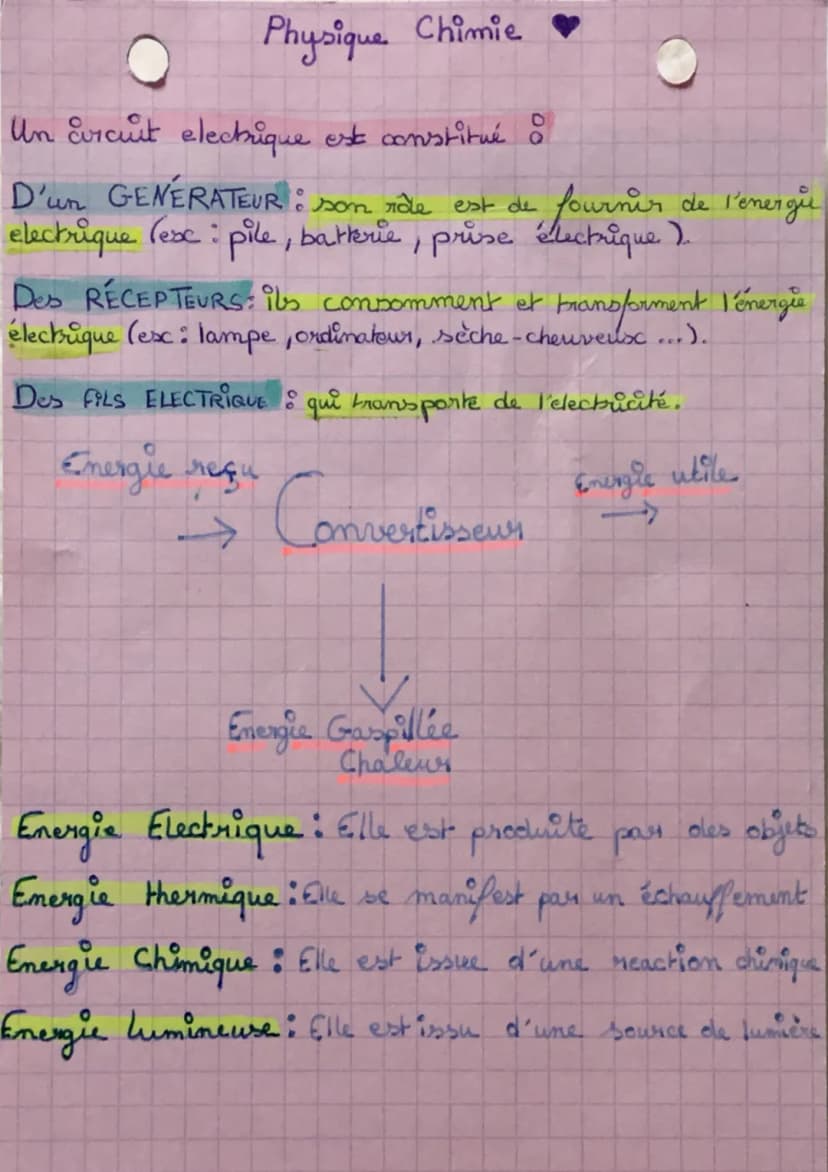 Physique Chimie ♥
Un circuit electrique est constitué :
D'un GENÉRATEUR : son rôle est de fournir de l'energie
electrique (ex : pile, batterie, prise électrique).
Des RÉCEPTEURS : ils consomment et transforment l'énergie
électrique (ex : lampe, ordinateur, sèche-cheuveux ...).
Des FILS ELECTRIQUE : qui transporte de l'electricité.
Energie reçu
Energie utile
→ Convertisseur →
Energie Gaspillée
Chaleur
Energie Electrique : Elle est produite par des objets
Energie thermique : Elle se manifest par un échauffement
Energie Chimique : Elle est issue d'une reaction chimique
Energie lumineuse : Elle est issu d'une source de lumière